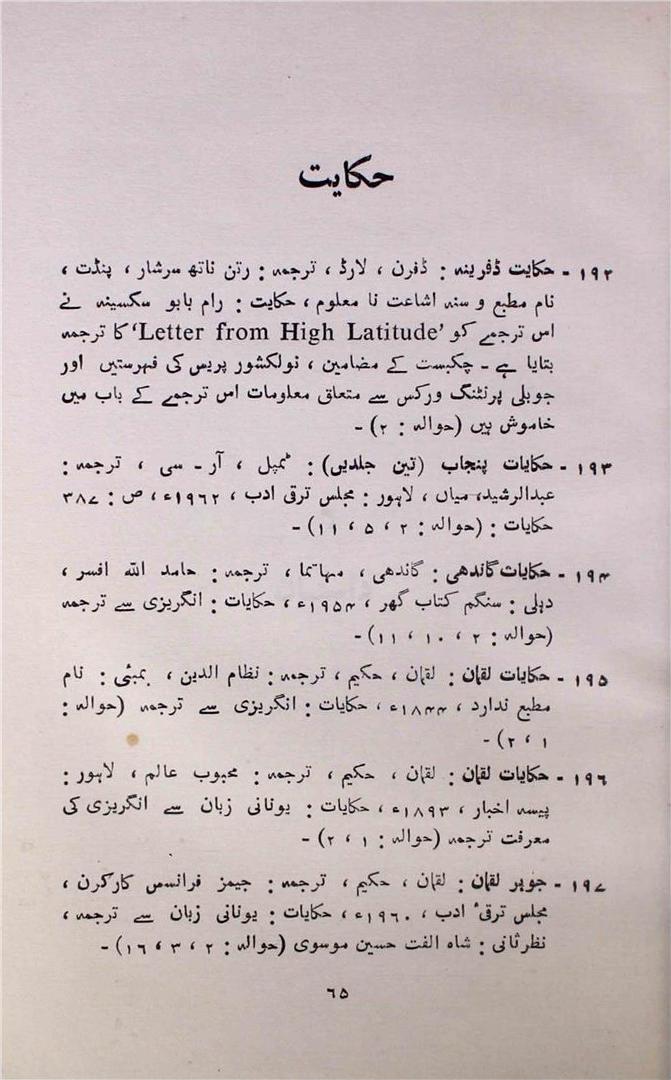 حکایت
۱۹۲ - حکایت ڈفرینہ : ڈفرن ، لارڈ ، ترجمہ : رتن ناتھ سرشار ، پنڈت ،
نام مطبع و سنہ اشاعت نا معلوم ، حکایت : رام بابو سکسینہ نے
اس ترجمے کو ’Letter from High Latitude‘ کا ترجمہ
بتایا ہے - چکبست کے مضامین ، نولکشور پریس کی فہرستیں اور
جوبلی پرنٹنگ ورکس سے متعلق معلومات اس ترجمے کے باب میں
خاموش ہیں (حوالہ : ۲) -
۱۹۳ - حکایات پنجاب (تین جلدیں) : ٹمپل ، آر - سی ، ترجمہ :
عبدالرشید، میاں ، لاہور : مجلس ترقی ادب ، ۱۹۶۲ء ، ص : ۳۸۷
حکایات : (حوالہ : ۲ ، ۵ ، ۱۱) -
۱۹۴ - حکایات گاندھی : گاندھی ، مہاتما ، ترجمہ : حامد اللہ افسر ،
دہلی : سنگم کتاب گھر ، ۱۹۵۴ء ، حکایات : انگریزی سے ترجمہ
(حوالہ : ۲ ، ۱۰ ، ۱۱) -
۱۹۵ - حکایات لقمان : لقمان ، حکیم ، ترجمہ : نظام الدین ، بمبئی : نام
مطبع ندارد ، ۱۸۴۴ء ، حکایات : انگریزی سے ترجمہ (حوالہ :
۱ ، ۲) -
۱۹۶ - حکایات لقمان : لقمان ، حکیم ، ترجمہ : محبوب عالم ، لاہور :
پیسہ اخبار ، ۱۸۹۳ء ، حکایات : یونانی زبان سے انگریزی کی
معرفت ترجمہ (حوالہ : ۱ ، ۲) -
۱۹۷ - جوہر لقمان : لقمان ، حکیم ، ترجمہ : جیمز فرانسس کارکرن ،
مجلس ترقیٔ ادب ، ۱۹۶۰ء ، حکایات : یونانی زبان سے ترجمہ ،
نظرثانی : شاہ الفت حسین موسوی (حوالہ : ۲ ، ۳ ، ۱۶) -
۶۵